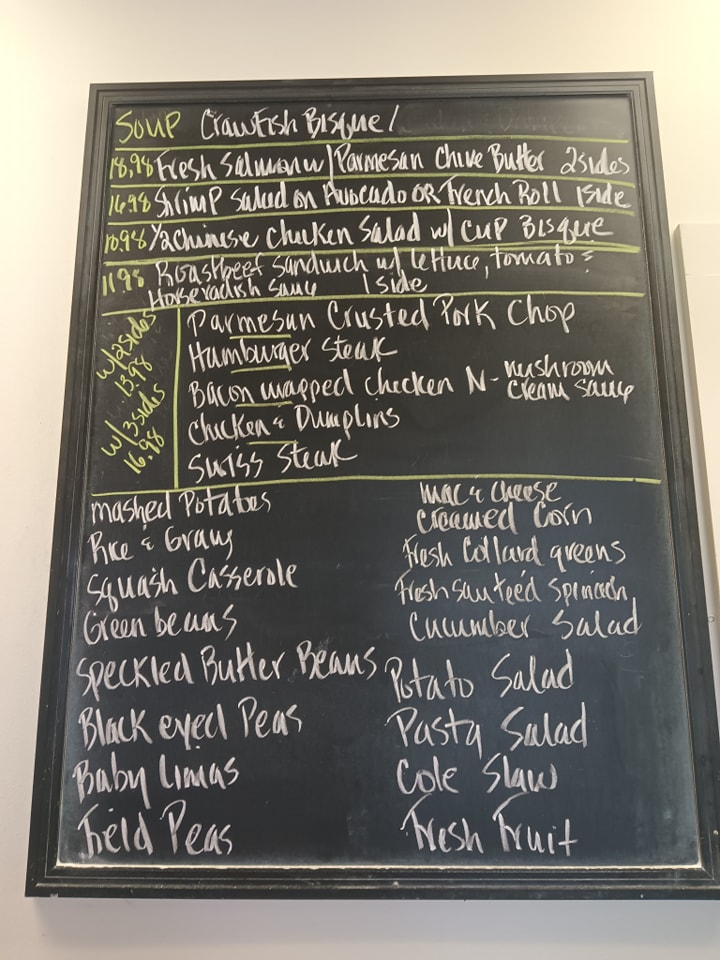 SOUP Crawfish Bisque/
18.98 Fresh Salmon w/ Parmesan Chive Butter 2 sides
16.98 Shrimp Salad on Avocado OR French Roll 1 side
10.98 1/2 Chinese Chicken Salad w/ Cup Bisque
11.98 Roastbeef Sandwich w/ lettuce, tomato &
Horseradish Sauce 1 side
w/2 sides
13.98
w/3 sides
16.98
Parmesan Crusted Pork Chop
Hamburger Steak
Bacon wrapped chicken N - mushroom
cream sauce
Chicken & Dumplins
Swiss Steak
mashed Potatoes
Rice & Gravy
Squash Casserole
Green beans
Speckled Butter Beans
Black eyed Peas
Baby Limas
Field Peas
mac & cheese
Creamed Corn
Fresh Collard greens
Fresh Sauteéd Spinach
Cucumber Salad
Potato Salad
Pasta Salad
Cole Slaw
Fresh Fruit